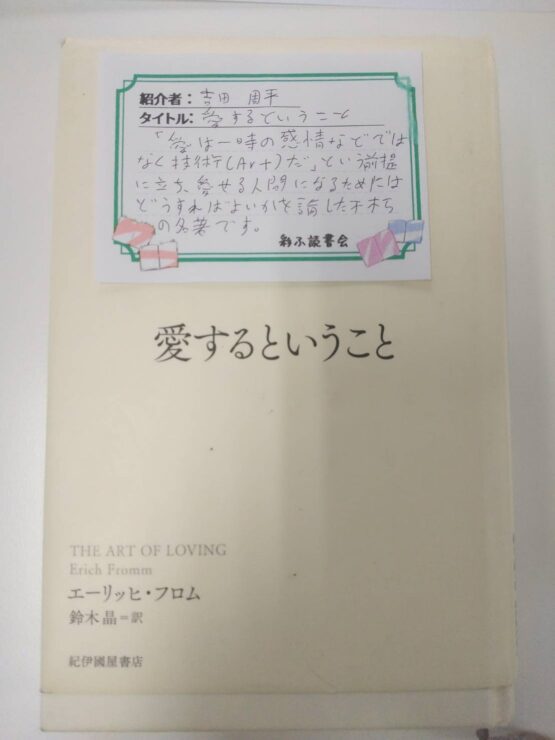 紹介者：吉田 周平
タイトル：愛するということ
「愛は一時の感情などでは
なく技術(Art)だ」という前提
に立ち、愛せる人間になるためには
どうすればよいかを論した不朽
の名著です。
彩ふ読書会
愛するということ
THE ART OF LOVING
Erich Fromm
エーリッヒ・フロム
鈴木 晶＝訳
紀伊國屋書店